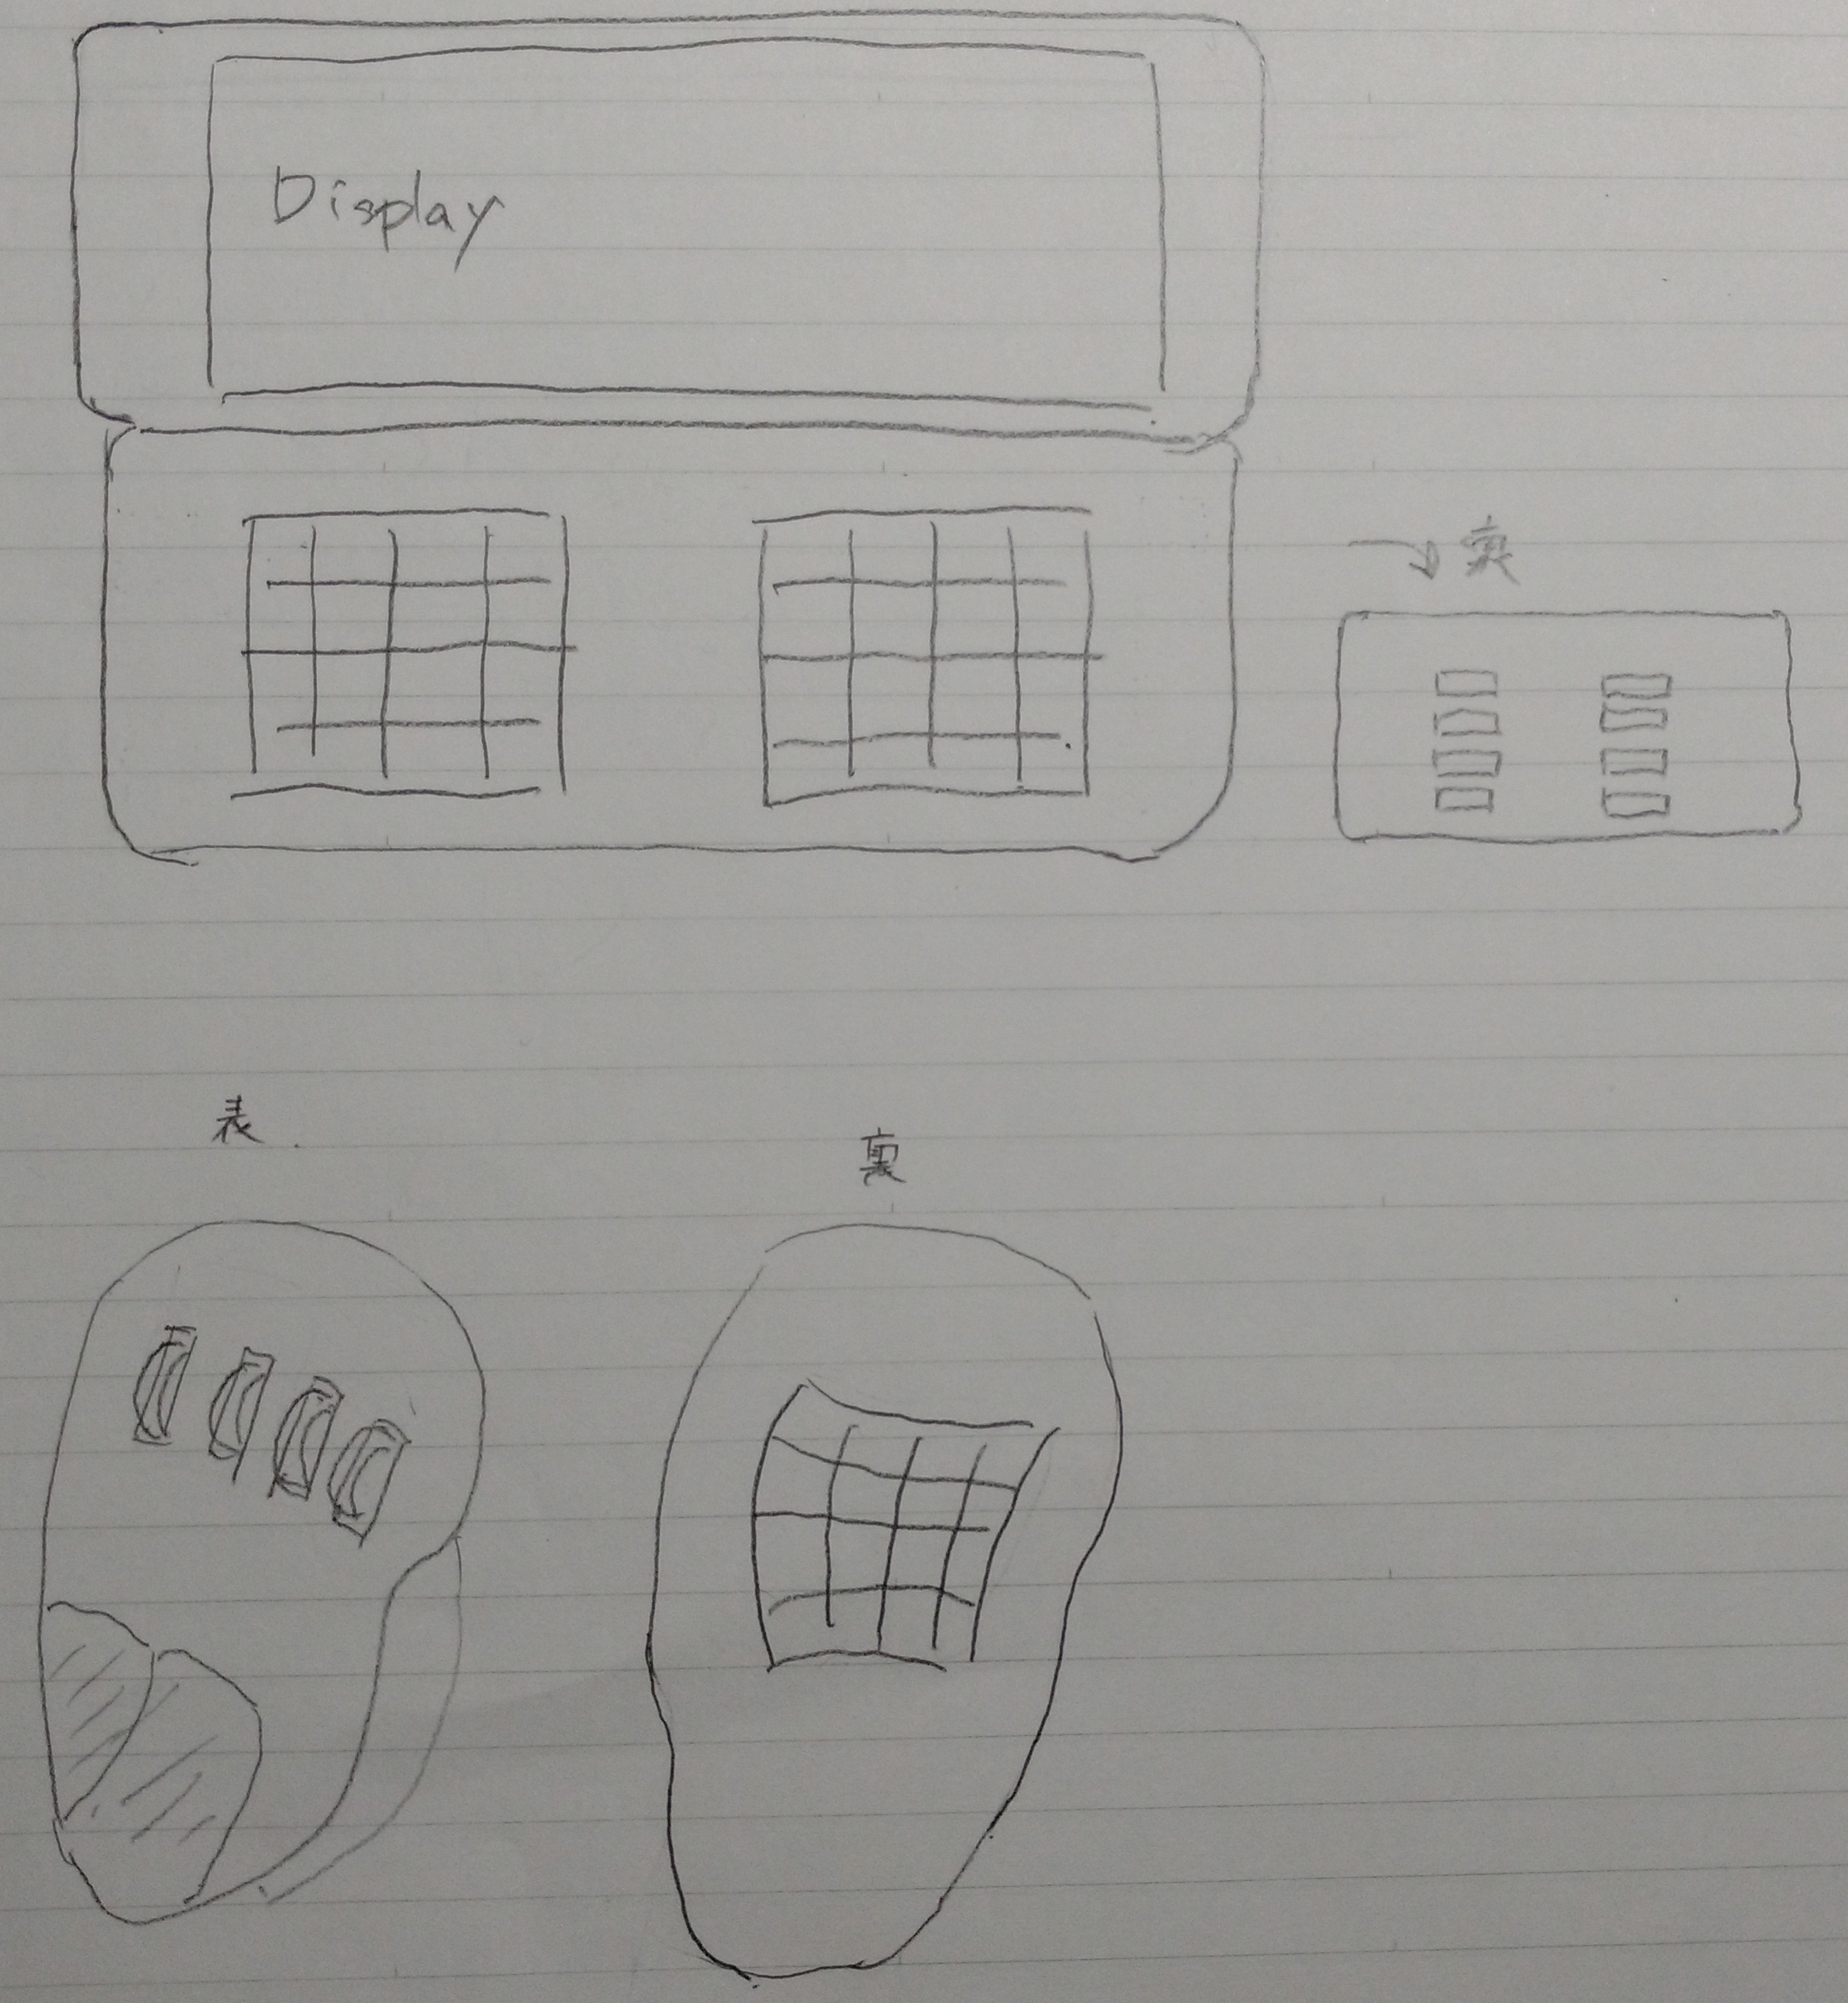 Display
裏
表
裏